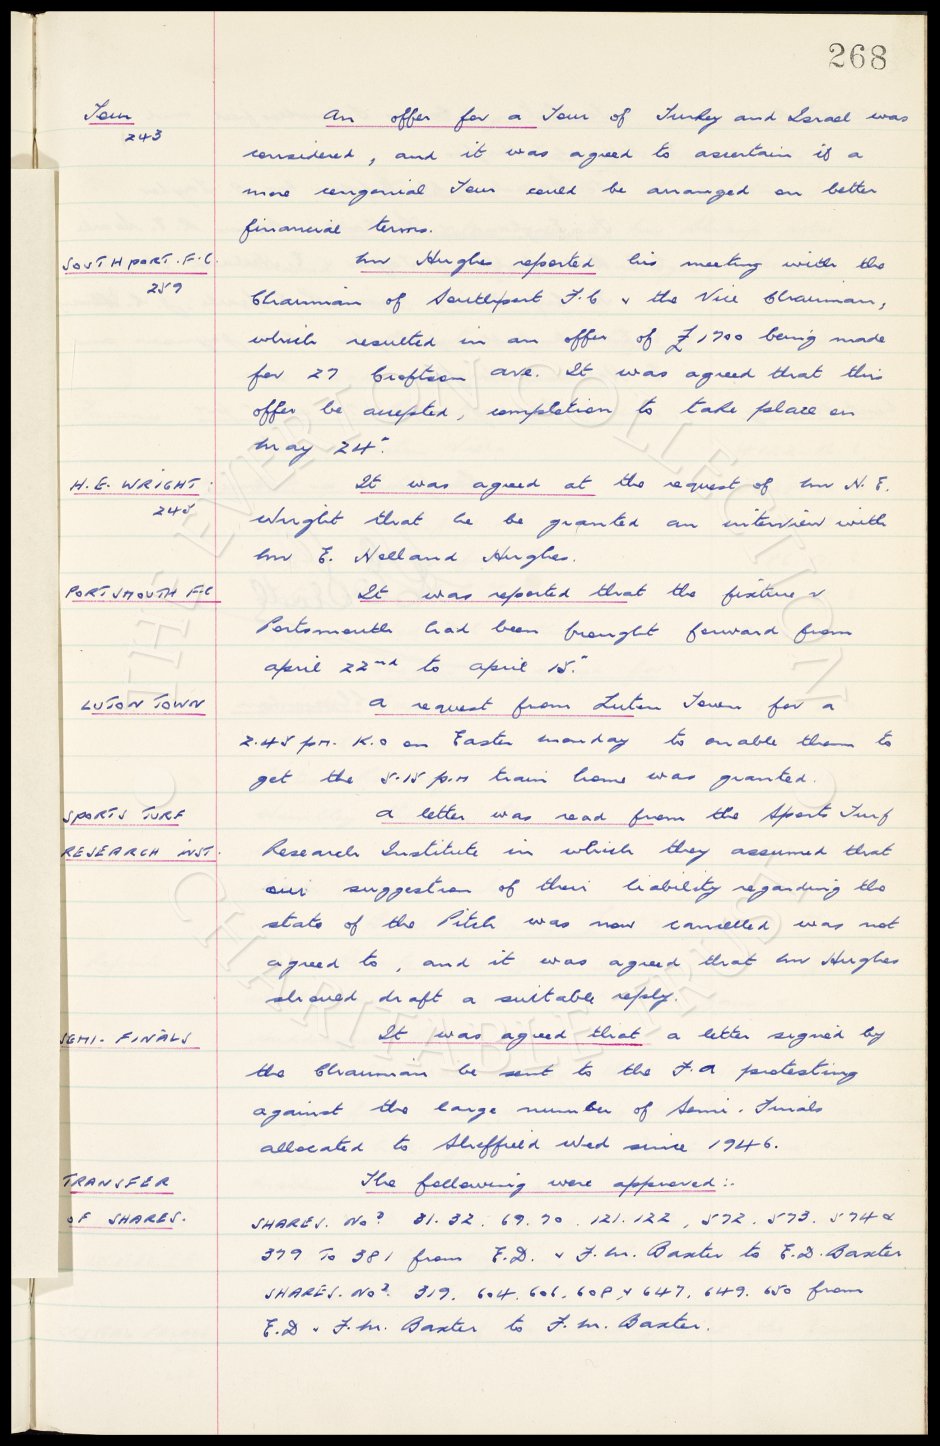 268
Tour
243
An offer for a Tour of Turkey and Israel was
considered, and it was agreed to ascertain if a
more congenial Tour could be arranged on better
financial terms.
SOUTHPORT. F.C.
259
Mr Hughes reported his meeting with the
Chairman of Southport F.C & the Vice Chairman,
which resulted in an offer of £1700 being made
for 27 Crofton Ave. It was agreed that this
offer be accepted, completion to take place on
May 24".
H. E. WRIGHT.
245
It was agreed at the request of Mr H. E.
Wright that he be granted an interview with
Mr E. Holland Hughes.
PORTSMOUTH F.C
It was reported that the fixture v
Portsmouth had been brought forward from
April 22nd to April 15".
LUTON TOWN
A request from Luton Town for a
2.45 pm. K.O on Easter Monday to enable them to
get the 5.15 p.m train home was granted.
SPORTS TURF
RESEARCH INST.
A letter was read from the Sports Turf
Research Institute in which they assumed that
our suggestion of their liability regarding the
state of the Pitch was now cancelled was not
agreed to, and it was agreed that Mr Hughes
should draft a suitable reply.
SEMI-FINALS
It was agreed that a letter signed by
the Chairman be sent to the F.A protesting
against the large number of Semi-Finals
allocated to Sheffield Wed since 1946.
TRANSFER
OF SHARES.
The following were approved:-
SHARES. Nos 31. 32. 69. 70. 121. 122, 572. 573. 574 &
379 To 381 from E.D. & F.M. Baxter to E.D. Baxter
SHARES. Nos. 319. 604. 606. 608 & 647. 649. 650 from
E.D & F.M. Baxter to F.M. Baxter.
THE EVERTON COLLECTION
CHARITABLE TRUST